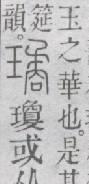 玉之華也。是其
筳
韻。璚瓊或从